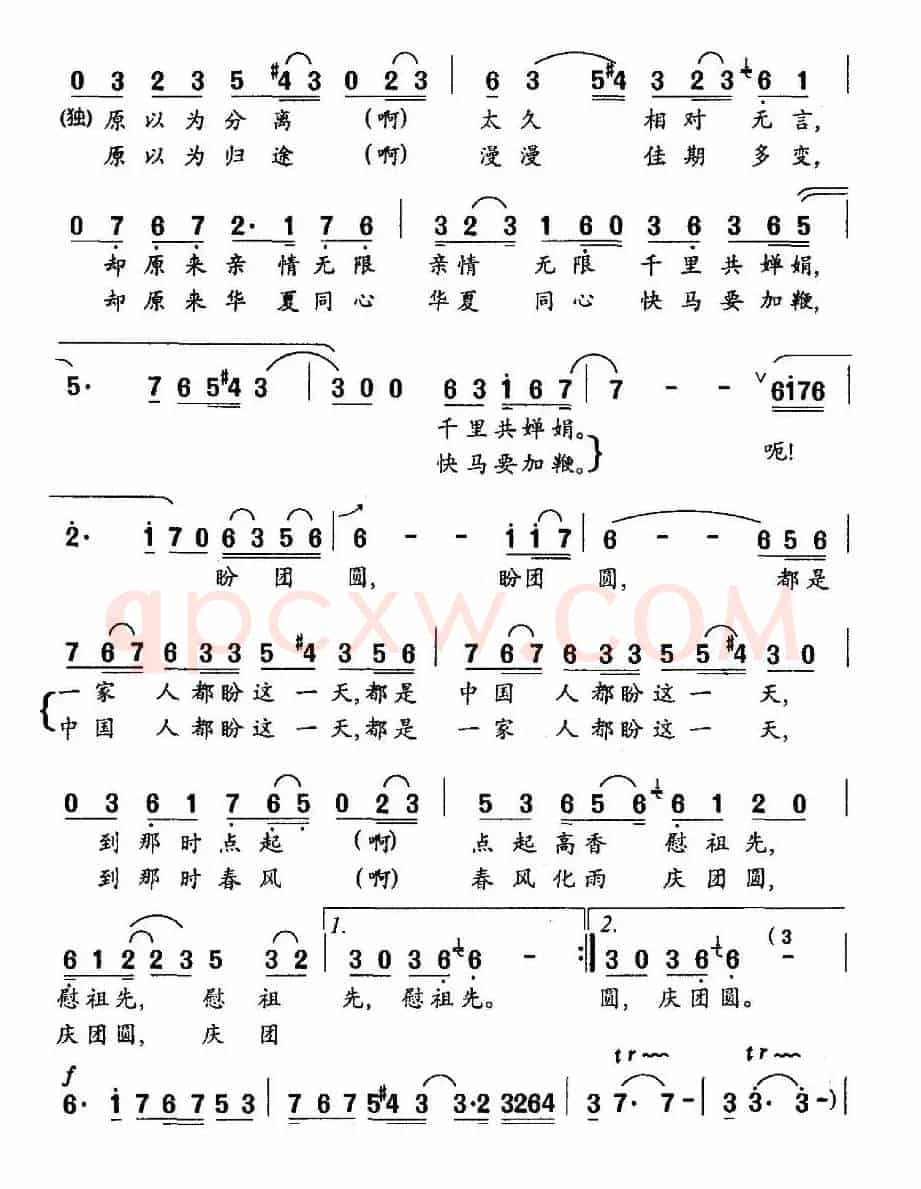 0 3 2 3 5 #4 3 0 2 3 | 6 3 5 #4 3 2 3 6 1 |
(独) 原以为分离 (啊) 太久 相对 无言,
原以为归途 (啊) 漫漫 佳期 多变,
0 7 6 7 2· 1 7 6 | 3 2 3 1 6 0 3 6 3 6 5 |
却原来亲情无限 亲情 无限 千里共婵娟,
却原来华夏同心 华夏 同心 快马要加鞭,
5· 7 6 5 #4 3 | 3 0 0 6 3 i 6 7 | 7 - - ∨ 6 i 7 6 |
千里共婵娟。
快马要加鞭。 呃!
2· i 7 0 6 3 5 6 | 6 - - i i 7 | 6 - - 6 5 6 |
盼团圆, 盼团圆, 都是
qpcxw.COM
7 6 7 6 3 3 5 #4 3 5 6 | 7 6 7 6 3 3 5 5 #4 3 0 |
一家人都盼这一天,都是中国人都盼这一天,
中国人都盼这一天,都是一家人都盼这一天,
0 3 6 1 7 6 5 0 2 3 | 5 3 6 5 6 6 1 2 0 |
到那时点起 (啊) 点起高香 慰祖先,
到那时春风 (啊) 春风化雨 庆团圆,
6 1 2 2 3 5 3 2 | 1. 3 0 3 6 6 - :| 2. 3 0 3 6 6 (3 - |
慰祖先, 慰祖先, 慰祖先。 圆, 庆团圆。
庆团圆, 庆团
f tr tr
6· i 7 6 7 5 3 | 7 6 7 5 #4 3 3·2 3264 | 3 7· 7·- | 3 3· 3·-) |